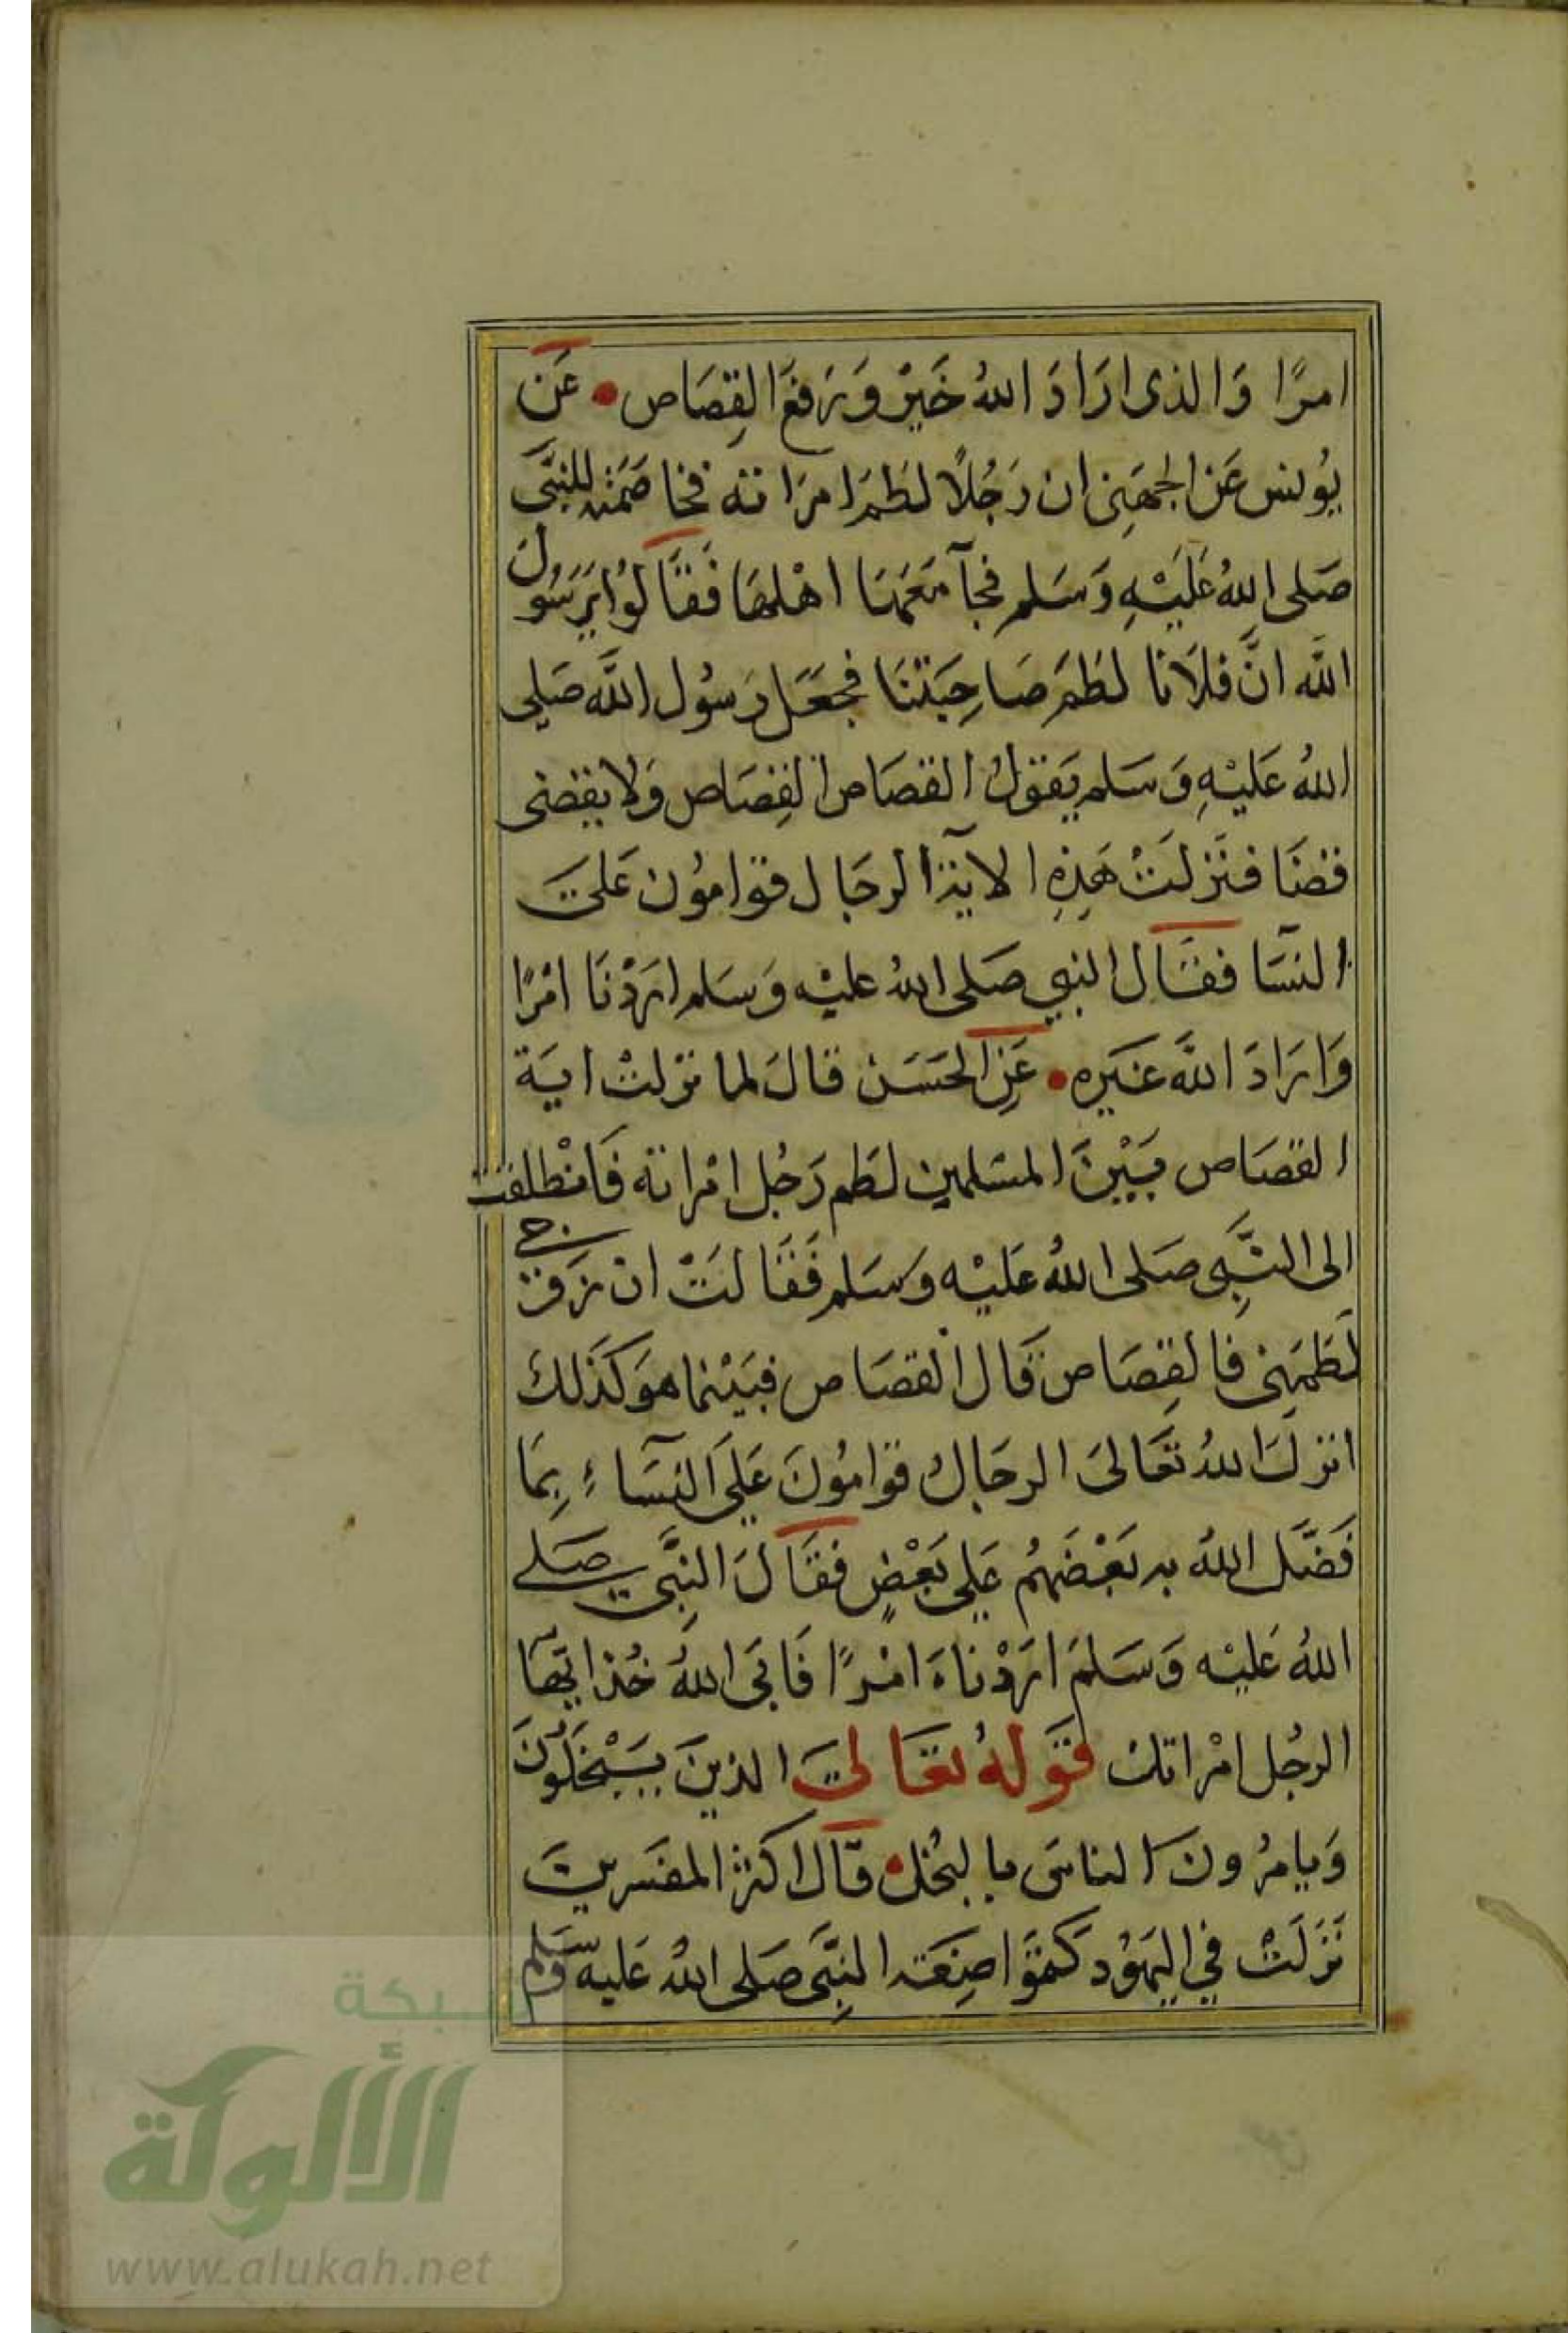 امرًا وَالذى ارَادَ اللهُ خَيْر وَرَفَعَ القِصَاص • عَن
يُونس عَن الجهَنِى ان رَجُلاً لطَمَ امرَاته فخاصَمَته للنبىّ
صَلى اللهُ عَلَيْهِ وَسَلم فجآ مَعَهَا اهْلهَا فَقَالوُا يَرَسُولَ
اللَّه انَّ فلاَنا لطَمَ صَاحِبَتنَا فجعَل رَسُول اللَّه صَلى
اللهُ عَليْهِ وَسَلم يَقولُ القصَاص القِصَاص وَلا يقضى
قضَا فنَزلَتْ هَذِهِ الاية الرجَال قوامُون عَلىَ
النسَآ فقَال النبي صَلى اللهُ عليْه وَسَلم ارَدْنَا امْرًا
وَارَادَ اللَّه غيَره • عَنِ الحَسَن قالَ لما نزلتْ ايَة
القصَاص بَيْنَ المسْلمين لطَم رَجُل امْراته فَانْطلقت
الى النَّبِى صَلى اللهُ عَليْه وَسَلم فَقَالَتْ ان زوجى
لَطَمَنِى فالقِصَاص قَال القصَاص فبَيْنما هوَ كَذَلكَ
انزلَ اللهُ تعَالىَ الرجَالُ قوامُونَ عَلىَ النسَآءِ بِمَا
فَضَّل اللهُ به بَعْضَهُم عَلى بَعْضٍ فقَالَ النِبَّى صَلى
اللهُ عَليْه وَسَلمَ ارَدْناَ امْرًا فَابَى اللهُ خُذ ايهَا
الرجُل امْراتك قَولهُ تعَالىَ الذينَ يَبْخَلُونَ
وَيامرُونَ الناسَ بالبُخل • قَال اكثر المفسَرين
نَزلَتْ في اليهُود كتموَا صِفَة النِبَّى صَلى اللهُ عَليه وَسَلم
شبكة
الألوكة
www.alukah.net